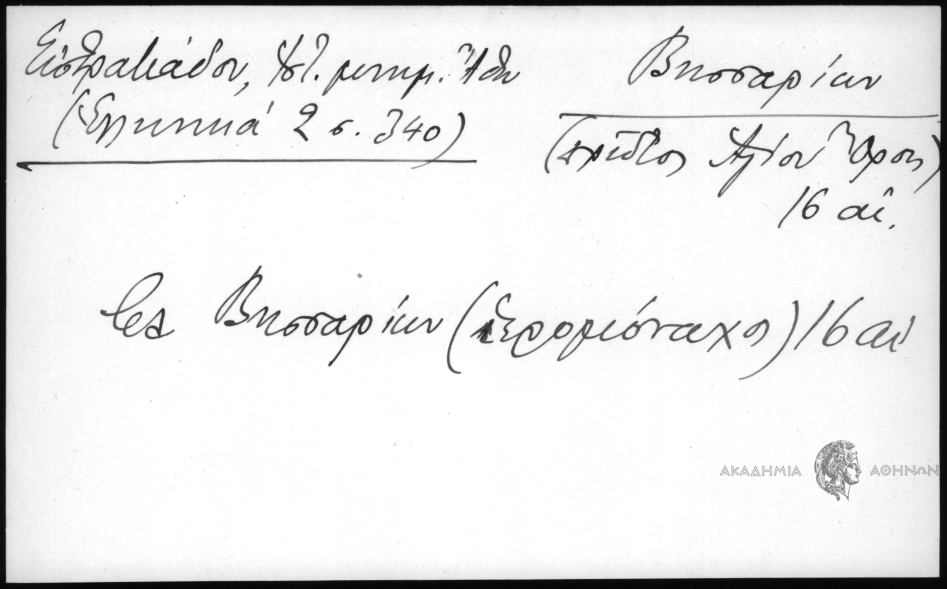 Εὐστρατιάδου, Ἱστ. μνημ. Ἄθω
(Ἑλληνικά 2 σ. 340)
Βησσαρίων
(πρῶτος Ἁγίου Ὄρους)
16 αἰ.
Βησσαρίων (ἱερομόναχος) 16 αἰ
ΑΚΑΔΗΜΙΑ ΑΘΗΝΩΝ